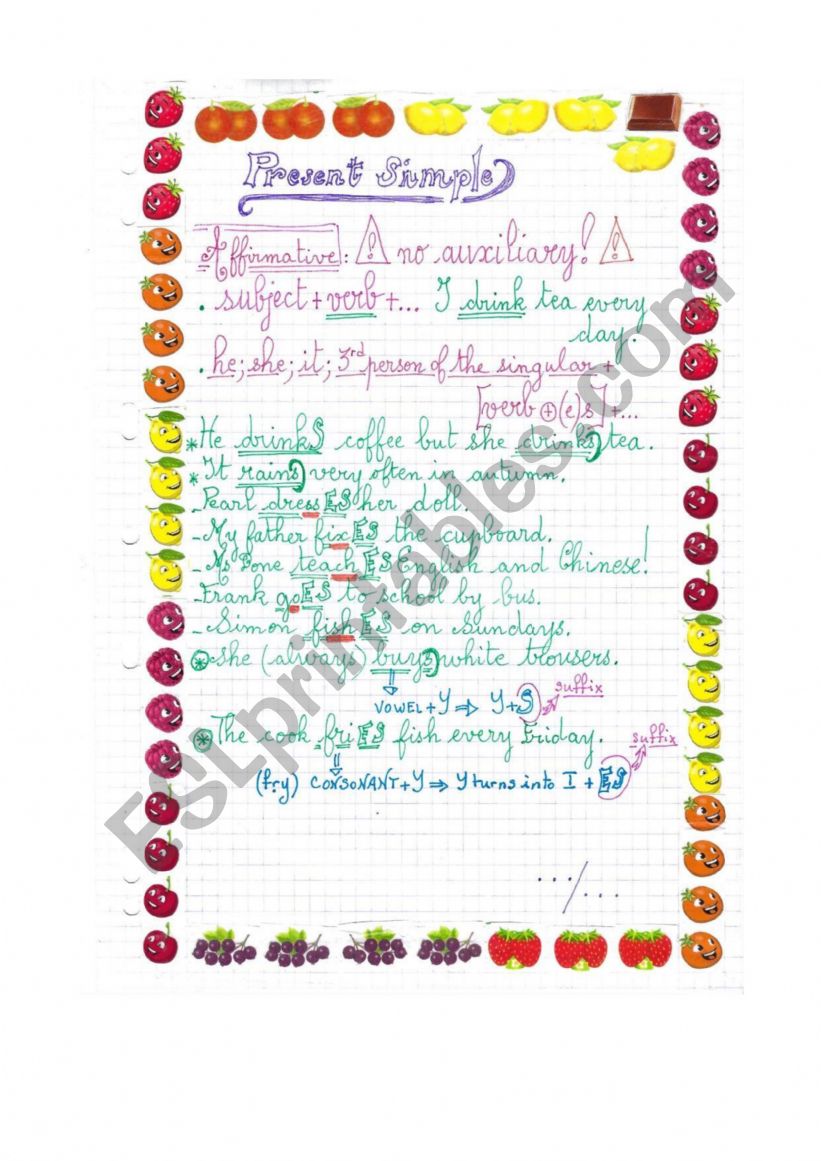 Present Simple
Affirmative: ⚠ no auxiliary! ⚠
. subject + verb + ... I drink tea every
day.
. he; she; it; 3rd person of the singular +
[verb ⊕ (e)s] + ...
* He drinkS coffee but she drinks tea.
* It rains very often in autumn.
- Pearl dressES her doll.
- My father fixES the cupboard.
- Ms Bone teachES English and Chinese!
- Frank goES to school by bus.
- Simon fishES on Sundays.
* She (always) buys white trousers.
suffix
VOWEL + Y ⇒ Y + S
* The cook friES fish every Friday.
suffix
(fry) CONSONANT + Y ⇒ Y turns into I + ES
.../...
ESLprintables.com